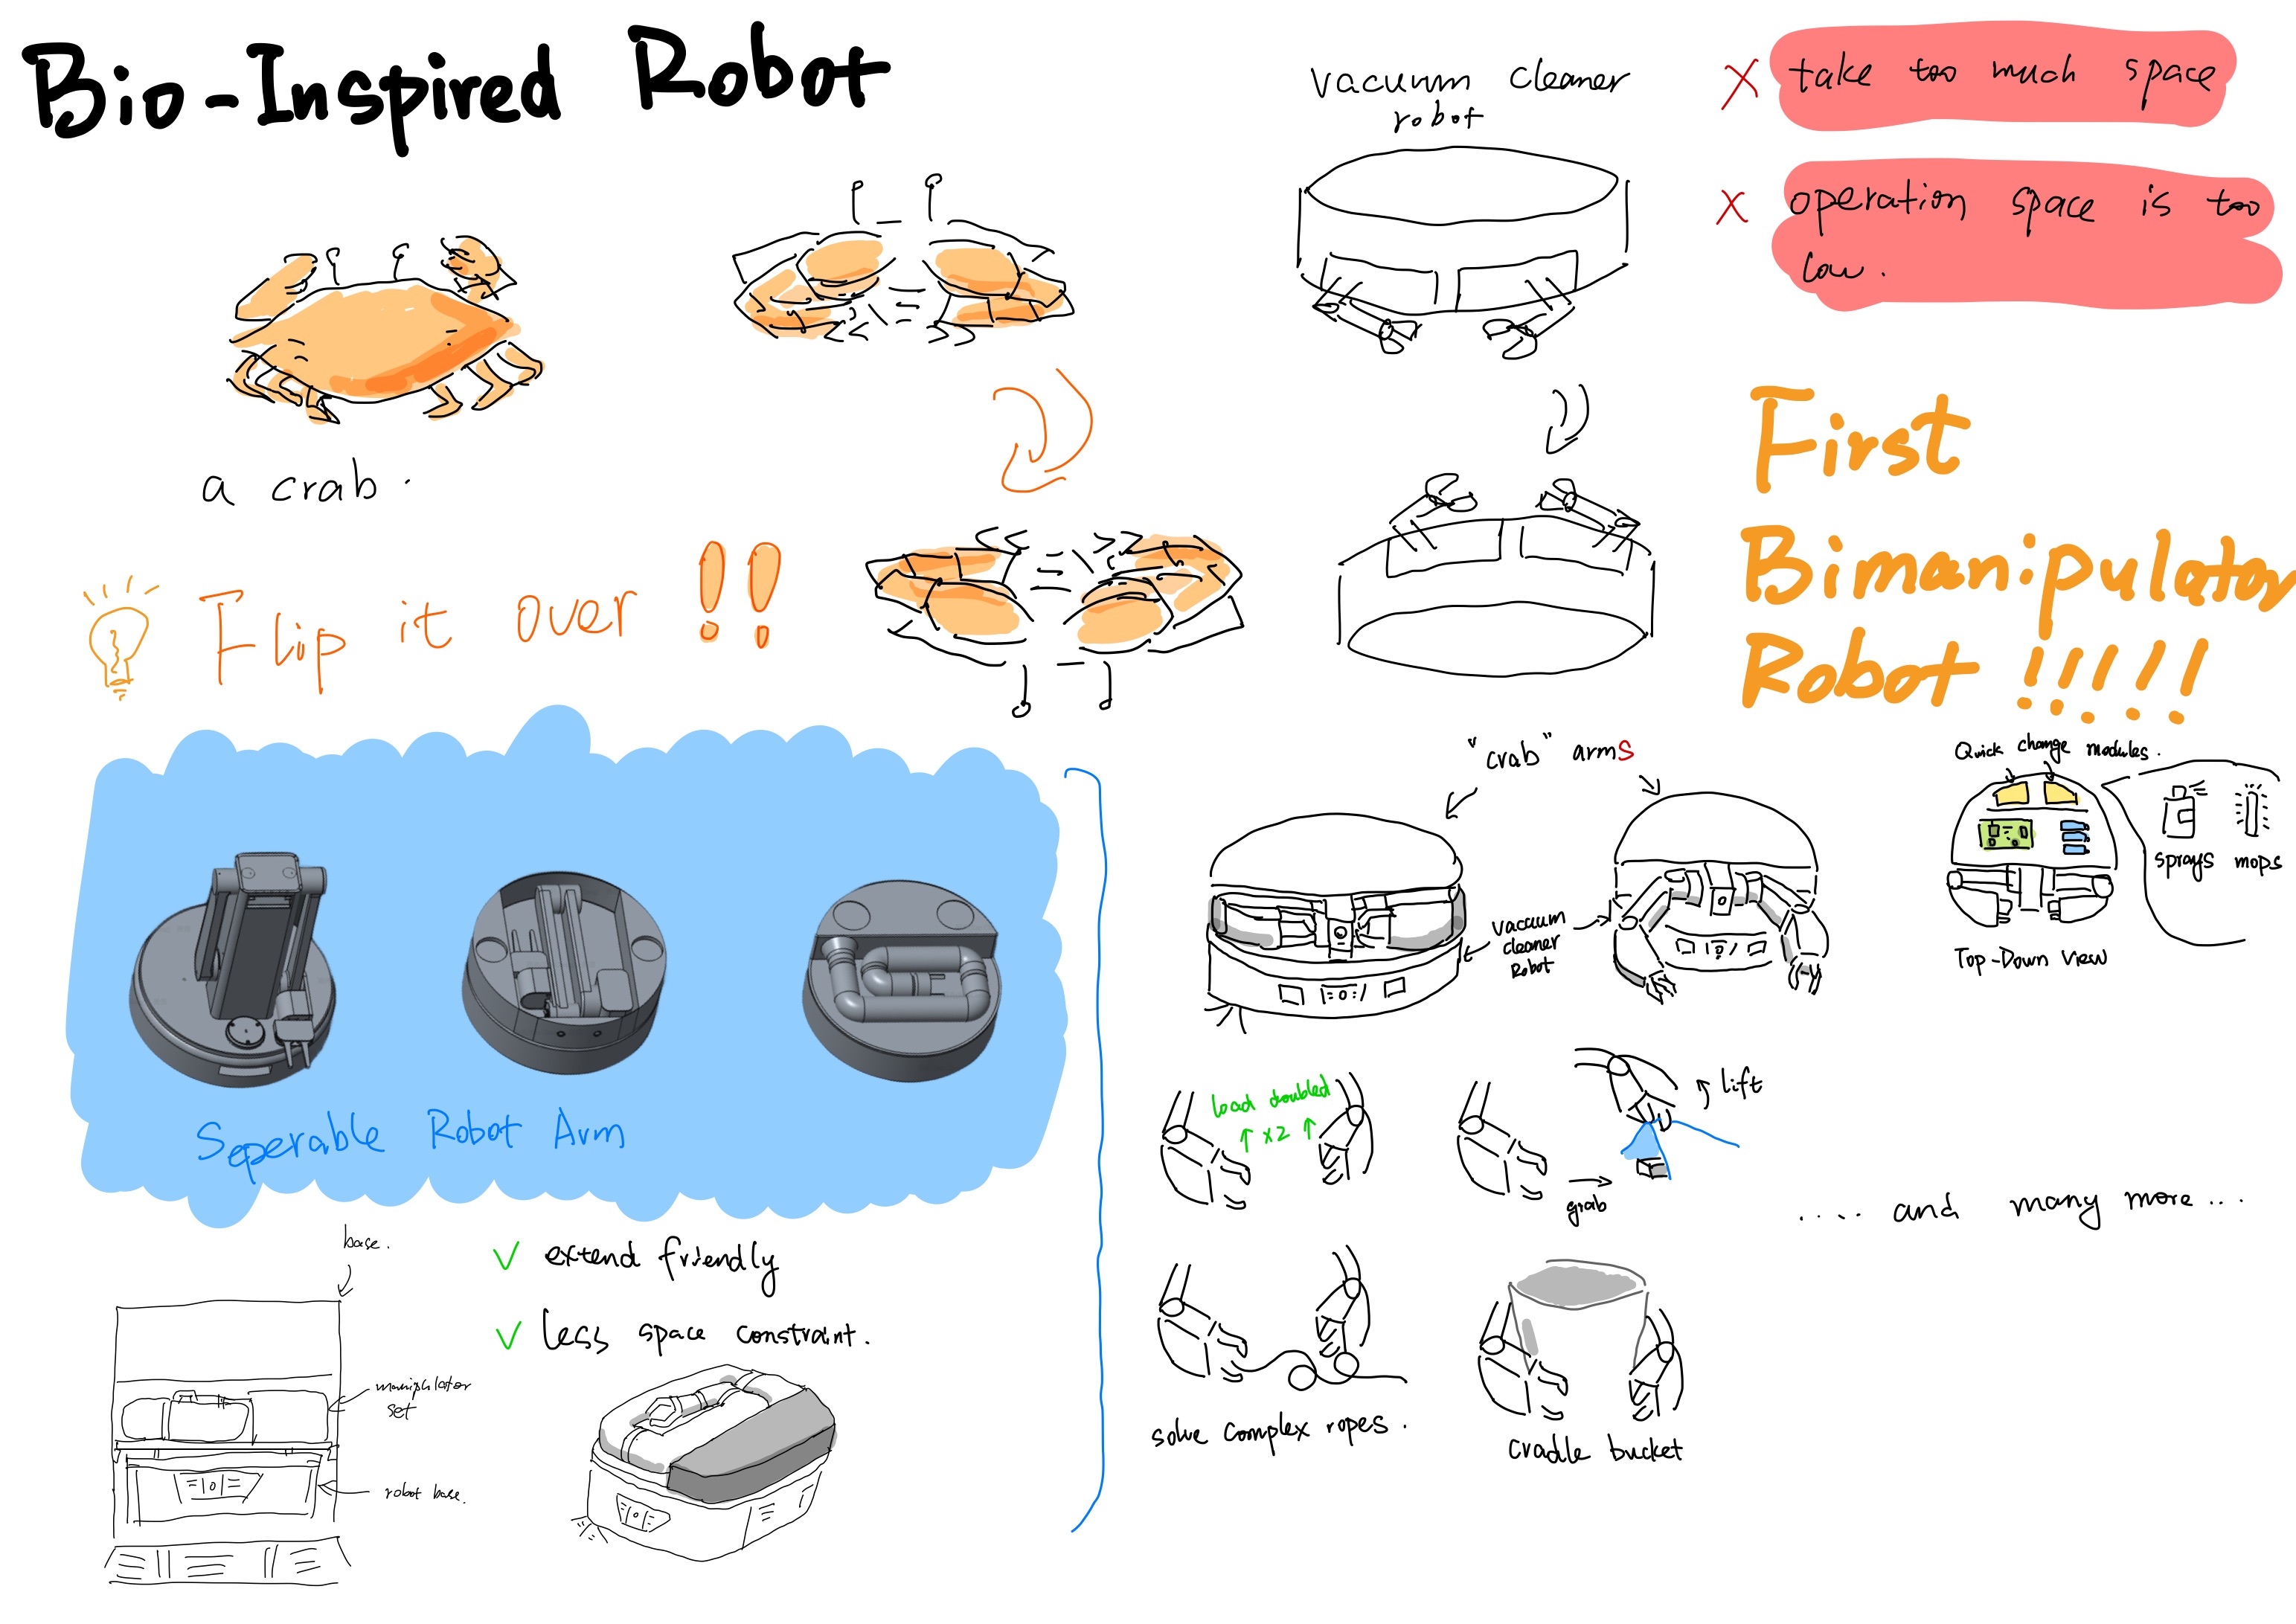 Bio-Inspired Robot
a crab.
Flip it over !!
vacuum cleaner
robot
X take too much space
X operation space is too
low.
First
Bimanipulator
Robot !!!!!
Seperable Robot Arm
base.
manipulator
set
robot base.
✓ extend friendly
✓ less space constraint.
"crab" arms
vacuum
cleaner
Robot
Quick change modules.
sprays mops
Top-Down view
load doubled
↑ x2 ↑
grab
lift
solve complex ropes.
cradle bucket
..... and many more ...